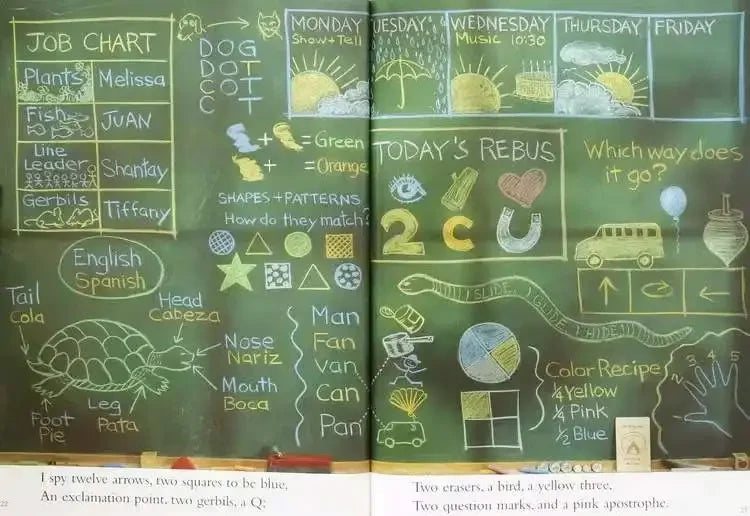 JOB CHART
Plants Melissa
Fish JUAN
Line Leader Shantay
Gerbils Tiffany
DOG
DOT
COT
C T
MONDAY
Show + Tell
UESDAY
WEDNESDAY
Music 10:30
THURSDAY
FRIDAY
+ = Green
+ = Orange
SHAPES + PATTERNS
How do they match?
TODAY'S REBUS
2 C U
Which way does
it go?
English
Spanish
Tail
Cola
Head
Cabeza
Nose
Nariz
Mouth
Boca
Leg
Pata
Foot
Pie
Man
Fan
Van
Can
Pan
I SLIDE, I GLIDE, I HIDE
Color Recipe
¼ Yellow
¼ Pink
½ Blue
2 3 4 5
I spy twelve arrows, two squares to be blue,
An exclamation point, two gerbils, a Q;
22
Two erasers, a bird, a yellow three,
Two question marks, and a pink apostrophe.